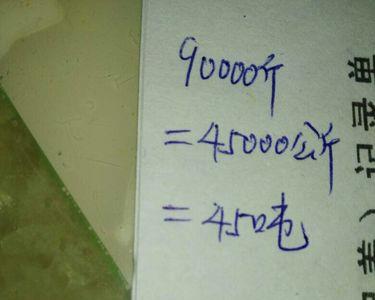 90000斤
=45000公斤
=45吨
记录单